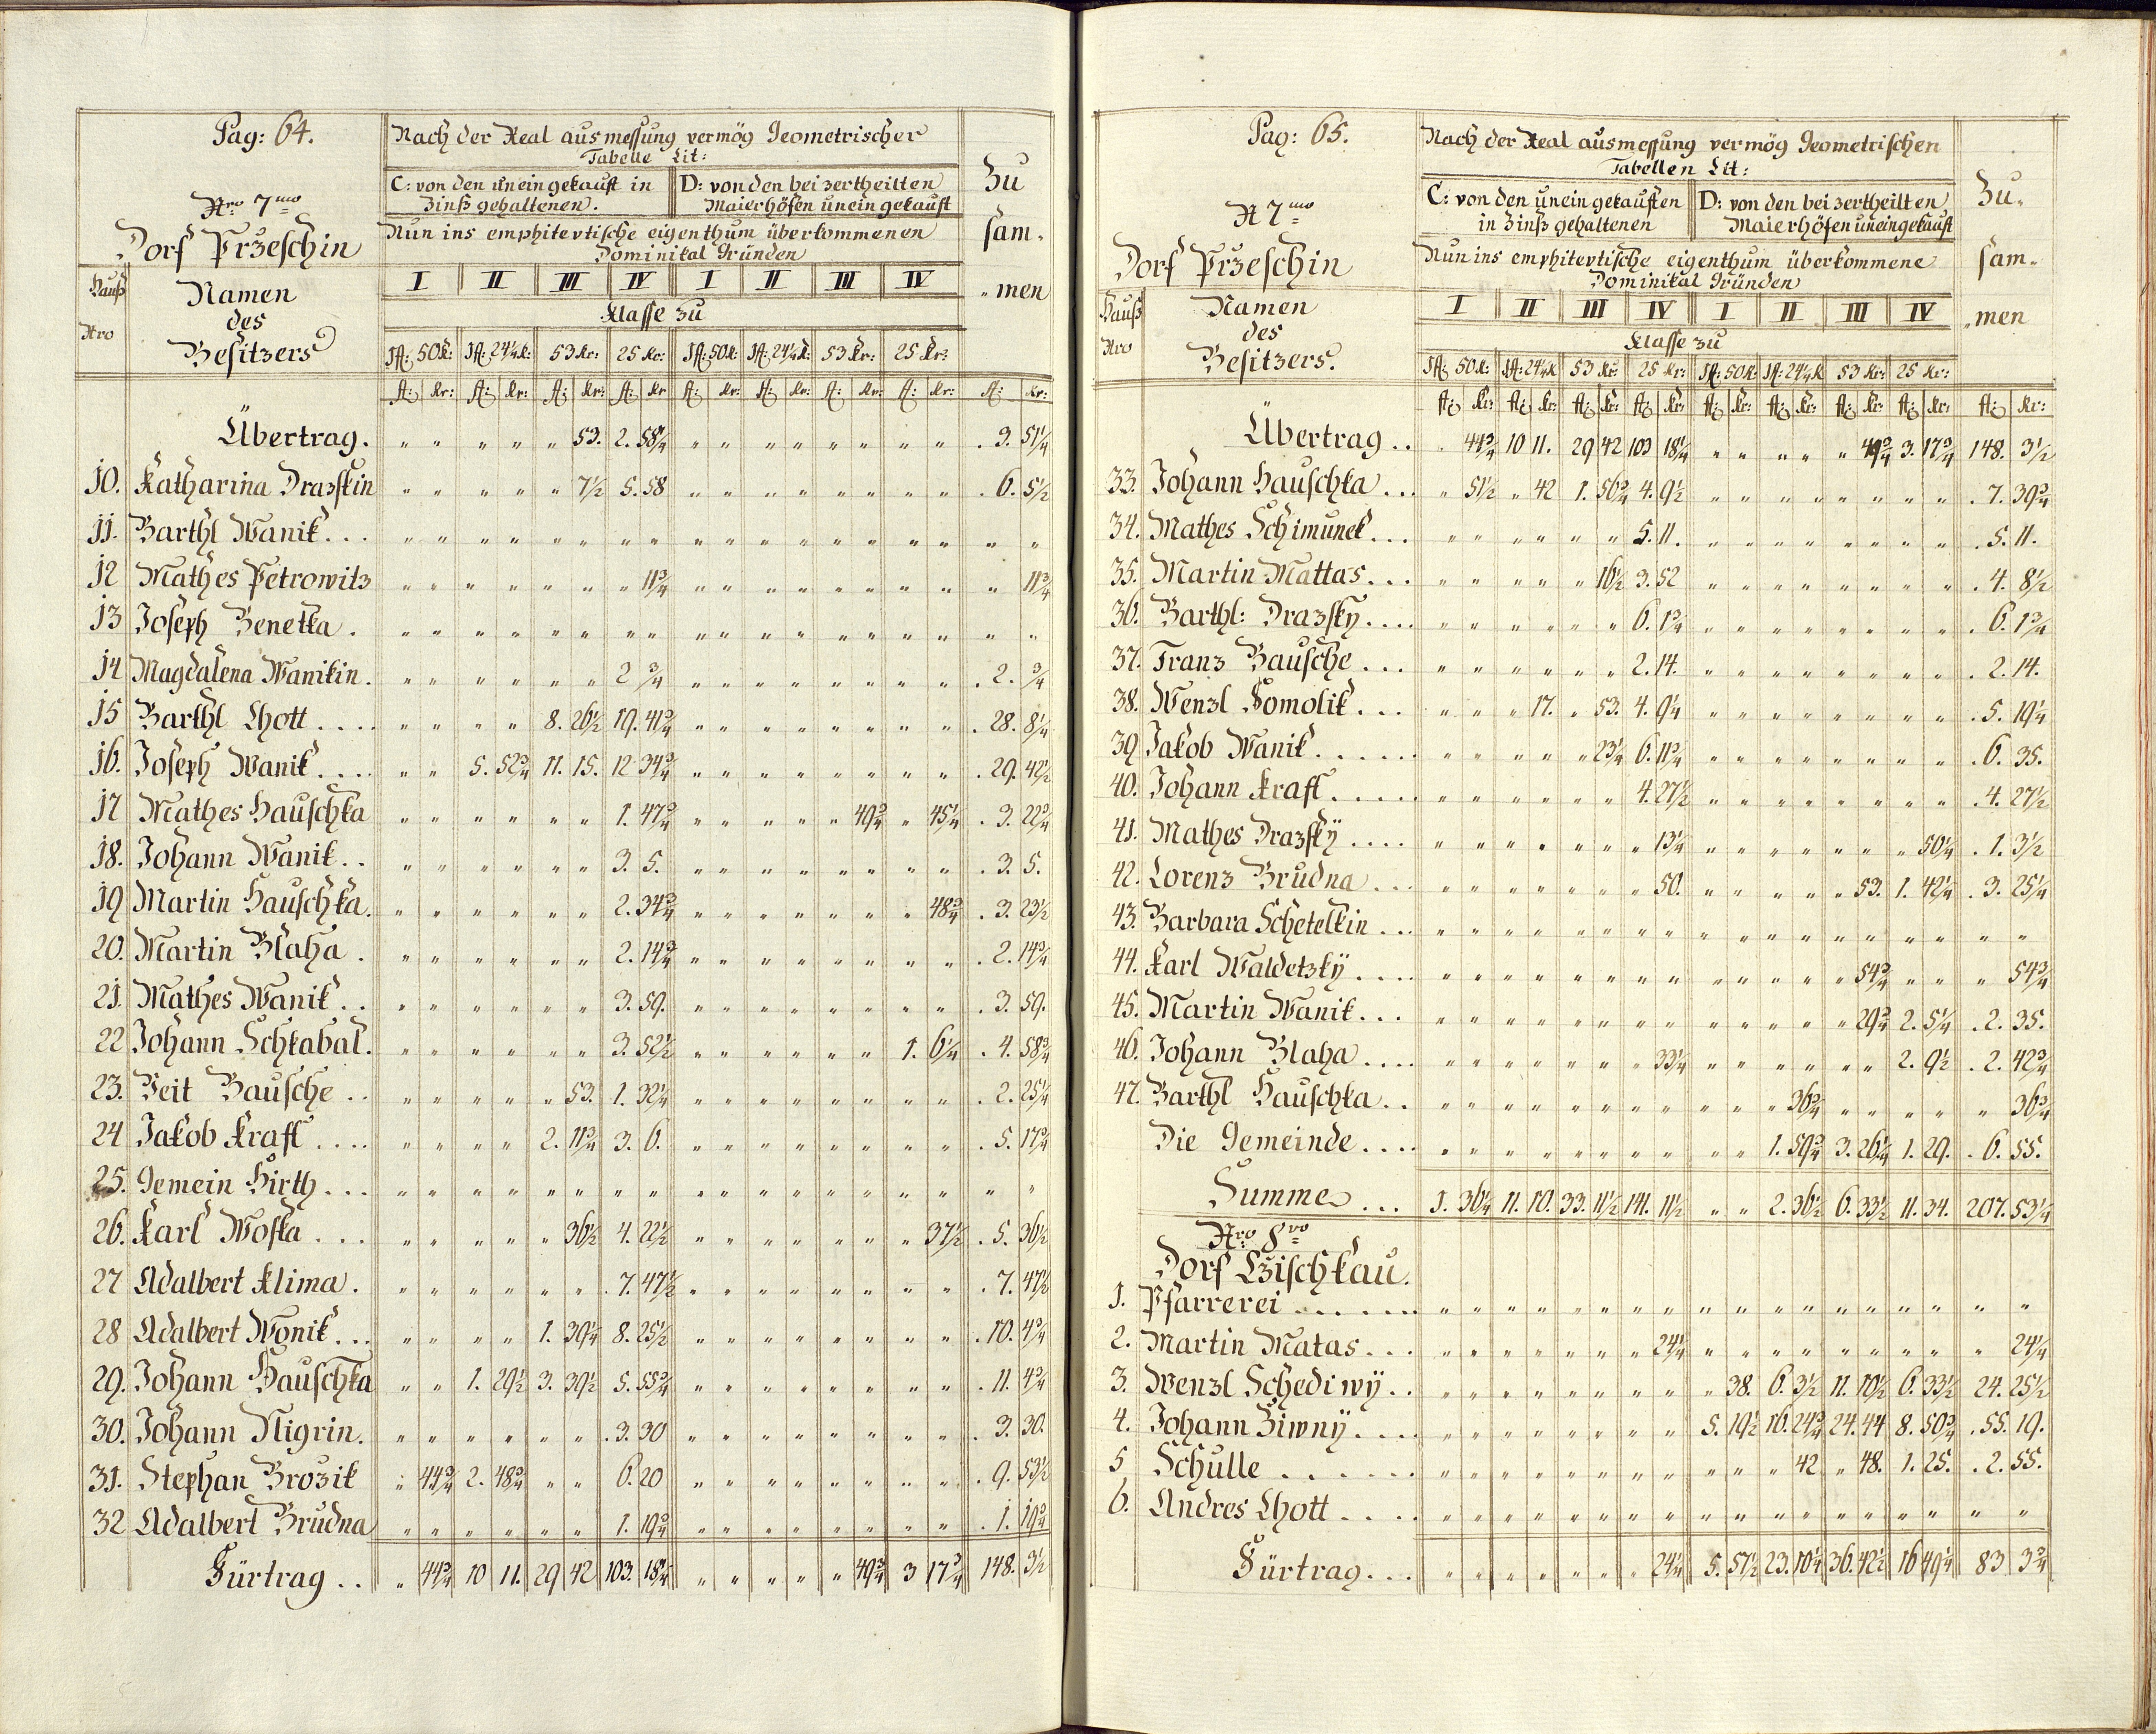 Pag: 64.
Nach der Real ausmessung vermög Geometrischer
Tabelle Lit:
C: von den uneingekauft in Zinß gehaltenen.
D: von den bei zertheilten Maierhöfen uneingekauft
Zu
sam.
"men
Nro 7mo
Dorf Przeschin
Nun ins emphitevtische eigenthum überkommenen
Dominikal Gründen
Hauß Nro
Namen des Besitzers
I II III IV I II III IV
Klasse zu
1fl: 50k: 1fl: 24¼k: 53 kr: 25 kr: 1fl: 50k: 1fl: 24¼k: 53 kr: 25 kr:
fl: kr: fl: kr: fl: kr: fl: kr fl: kr: fl: kr: fl: kr: fl: kr: fl: kr:
Übertrag. " " " " " 53. 2. 58¼ " " " " " " " " . 3. 51¼
10. Katharina Drazskin " " " " " 7½ 5. 58 " " " " " " " " . 6. 5½
11. Barthl Wanik... " " " " " " " " " " " " " " " " " "
12 Mathes Petrowitz " " " " " " " 11¾ " " " " " " " " " 11¾
13 Joseph Benetka. " " " " " " " " " " " " " " " " " "
14 Magdalena Wanikin. " " " " " " 2 ¾ " " " " " " " " . 2. ¾
15 Barthl Chott.... " " " " 8. 26½ 19. 41¾ " " " " " " " " . 28. 8¼
16. Joseph Wanik.... " " 5. 52¾ 11. 15. 12 34¾ " " " " " " " " . 29. 42½
17 Mathes Hauschka " " " " " " 1. 47¾ " " " " " 49¾ " 45¼ . 3. 22¾
18. Johann Wanik.. " " " " " " 3. 5. " " " " " " " " . 3. 5.
19 Martin Hauschka. " " " " " " 2. 34¾ " " " " " " " 48¾ . 3. 23½
20. Martin Blaha. " " " " " " 2. 14¾ " " " " " " " " . 2. 14¾
21. Mathes Wanik.. " " " " " " 3. 59. " " " " " " " " . 3. 59.
22 Johann Schkabal. " " " " " " 3. 52½ " " " " " " 1. 6¼ . 4. 58¾
23. Veit Bausche.. " " " " " 53. 1. 32¼ " " " " " " " " . 2. 25¼
24 Jakob Kraft.... " " " " 2. 11¾ 3. 6. " " " " " " " " . 5. 17¾
25. Gemein Hirth... " " " " " " " " " " " " " " " " " "
26. Karl Woska... " " " " " 36½ 4. 22½ " " " " " " " 37½ . 5. 36½
27 Adalbert Klima. " " " " " " . 7. 47½ " " " " " " " " . 7. 47½
28 Adalbert Wonik... " " " " 1. 39¼ 8. 25½ " " " " " " " " . 10. 4¾
29. Johann Hauschka " " 1. 29½ 3. 39½ 5. 55¾ " " " " " " " " . 11. 4¾
30. Johann Nigrin. " " " " " " . 3. 30 " " " " " " " " . 3. 30.
31. Stephan Brozik " 44¾ 2. 48¾ " " 6. 20 " " " " " " " " . 9. 53½
32 Adalbert Brudna " " " " " " 1. 19¾ " " " " " " " " . 1. 19¾
Fürtrag.. " 44¾ 10 11. 29 42 103. 18¼ " " " " " 49¾ 3 17¾ 148. 3½
Pag: 65.
Nach der Real ausmessung vermög Geometrischen
Tabellen Lit:
C: von den uneingekauften in Zinß gehaltenen
D: von den bei zertheilten Maierhöfen uneingekauft
Zu.
sam.
"men
N 7mo
Dorf Przeschin
Nun ins emphitevtische eigenthum überkommene
Dominikal Gründen
Hauß Nro
Namen des Besitzers.
I II III IV I II III IV
Klasse zu
1fl: 50k: 1fl: 24¼k 53 kr: 25 kr: 1fl: 50k: 1fl: 24¼k 53 kr: 25 kr:
fl: kr: fl: kr: fl: kr: fl: kr: fl: kr: fl: kr: fl: kr: fl: kr: fl: kr:
Übertrag.. . 44¾ 10 11. 29 42 103 18¼ " " " " " 49¾ 3. 17¾ 148. 3½
33. Johann Hauschka... " 51½ " 42 1. 56¾ 4. 9½ " " " " " " " " . 7. 39¾
34. Mathes Schimunek... " " " " " " 5. 11. " " " " " " " " . 5. 11.
35. Martin Mattas... " " " " " 16½ 3. 52 " " " " " " " " . 4. 8½
36. Barthl: Drazsky.... " " " " " " 6. 1¾ " " " " " " " " . 6. 1¾
37. Franz Bausche... " " " " " " 2. 14. " " " " " " " " . 2. 14.
38. Wenzl Somolik... " " " 17. " 53. 4. 9¼ " " " " " " " " . 5. 19¼
39. Jakob Wanik...... " " " " " 23¼ 6. 11¾ " " " " " " " " . 6. 35.
40. Johann Kraft..... " " " " " " 4. 27½ " " " " " " " " . 4. 27½
41. Mathes Drazskÿ.... " " " " " " " 13¼ " " " " " " " 50¼ . 1. 3½
42. Lorenz Brudna... " " " " " " " 50. " " " " " 53. 1. 42¼ . 3. 25¼
43. Barbara Schetelkin... " " " " " " " " " " " " " " " " " "
44. Karl Waldetzkÿ.... " " " " " " " " " " " " " 54¾ " " " 54¾
45. Martin Wanik... " " " " " " " " " " " " " 29¾ 2. 5¼ . 2. 35.
46. Johann Blaha.... " " " " " " " 33¼ " " " " " " 2. 9½ . 2. 42¾
47. Barthl Hauschka.. " " " " " " " " " " " 36¾ " " " " " 36¾
Die Gemeinde.... " " " " " " " " " " 1. 59¾ 3. 26¼ 1. 29. . 6. 55.
Summe... 1. 36¼ 11. 10. 33. 11½ 141. 11½ " " 2. 36½ 6. 33½ 11. 34. 207. 53¼
Nro 8vo
Dorf Lzischkau.
1. Pfarrerei....... " " " " " " " " " " " " " " " " " "
2. Martin Matas... " " " " " " " 24¼ " " " " " " " " " 24¼
3. Wenzl Schediwÿ.. " " " " " " " " " 38. 6. 3½ 11. 10½ 6. 33½ 24. 25½
4. Johann Ziwnÿ.... " " " " " " " " 5. 19½ 16. 24¾ 24. 44 8. 50¾ . 55. 19.
5 Schulle...... " " " " " " " " " " " 42 " 48. 1. 25. . 2. 55.
6. Andres Chott.... " " " " " " " " " " " " " " " " " "
Fürtrag... " " " " " " " 24¼ 5. 57½ 23. 10¼ 36. 42½ 16 49¼ 83 3¾